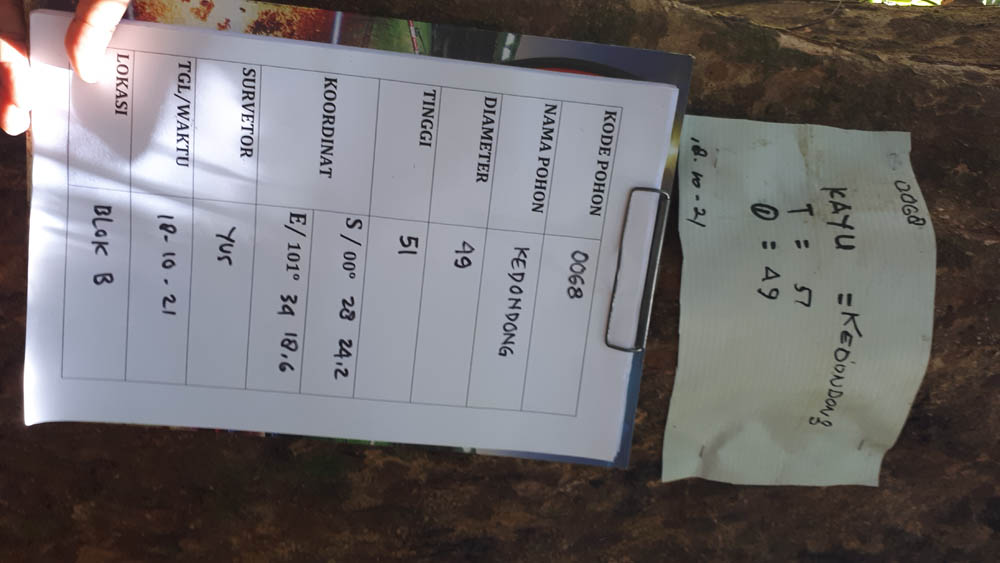 0068
KAYU = KEDONDONG
T = 51
Ø = 49
18-10-21
KODE POHON 0068
NAMA POHON KEDONDONG
DIAMETER 49
TINGGI 51
KOORDINAT
S / 00° 28 24,2
E/ 101° 34 18,6
SURVETOR YUS
TGL/WAKTU 18-10-21
LOKASI BLOK B